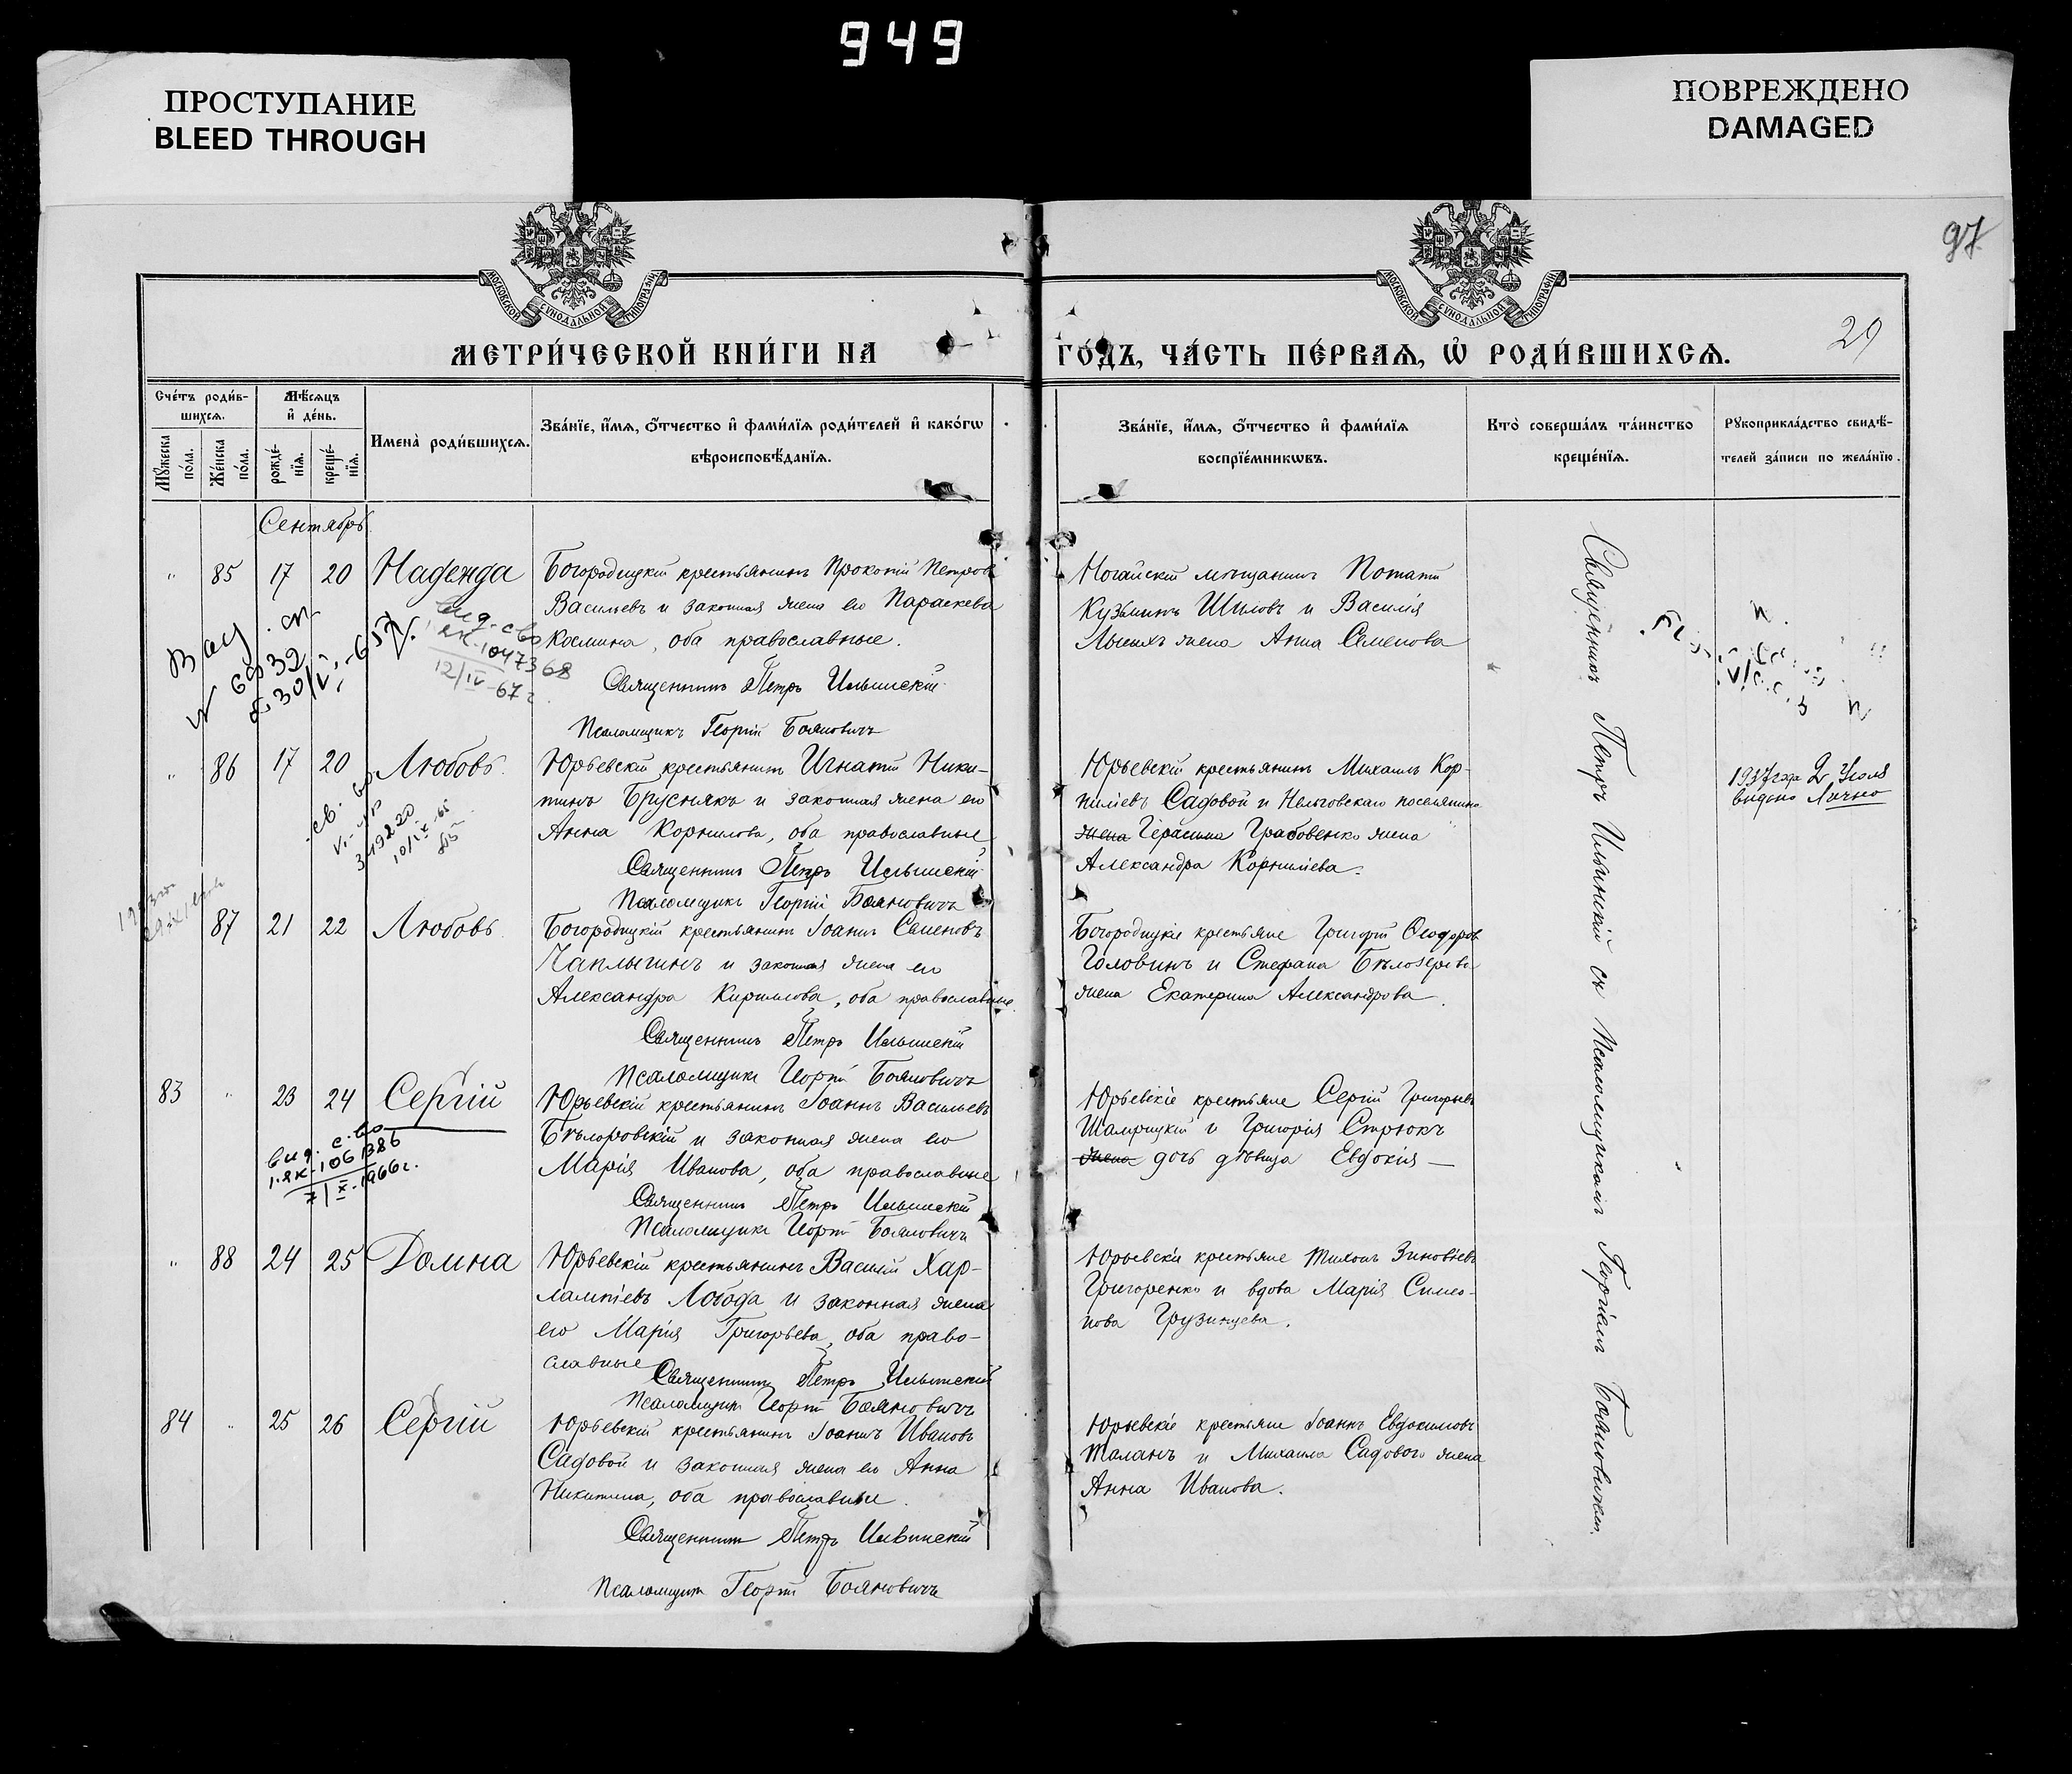 949
ПРОСТУПАНИЕ
BLEED THROUGH
ПОВРЕЖДЕНО
DAMAGED
97
29
МОСКОВСКОЙ СѴНОДАЛЬНОЙ ТИПОГРАФІИ
МОСКОВСКОЙ СѴНОДАЛЬНОЙ ТИПОГРАФІИ
МЕТРИ́ЧЕСКОЙ КНИ́ГИ НА ГО́ДЪ, ЧА́СТЬ ПЕ́РВАѦ, Ѡ҆ РОДИ́ВШИХСѦ.
Сче́тъ роди́в-
шихсѧ.
Мꙋ́жеска по́ла.
Же́нска по́ла.
Мѣ́сѧцъ и҆ де́нь.
рожде́-нїѧ.
креще́-нїѧ.
Имена̀ роди́вшихсѧ.
Зва́нїе, и҆́мѧ, ѻ҆́тчество и҆ фами́лїѧ роди́телей и҆ како́гѡ
вѣроисповѣ́данїѧ.
Зва́нїе, и҆́мѧ, ѻ҆́тчество и҆ фами́лїѧ
воспрїе́мникѡвъ.
Кто̀ соверша́лъ та́инство
креще́нїѧ.
Рꙋкоприкла́дство свидѣ́-
телей за́писи по жела́нїю.
Сентябрь
" 85 17 20 Надежда
Богородицкій крестьянинъ Прокопій Петровъ
Васильевъ и законная жена его Параскева
Космина, оба православные.
Священникъ Петръ Ильинскій
Псаломщикъ Георгій Бояновичъ
Ногайскій мѣщанинъ Потапій
Кузьминъ Шиловъ и Василія
Лысыхъ жена Анна Семенова
1047368
12/IV-67 г.
" 86 17 20 Любовь
Юрьевскій крестьянинъ Игнатій Ники-
тинъ Бруснякъ и законная жена его
Анна Корнилова, оба православные
Священникъ Петръ Ильинскій
Псаломщикъ Георгій Бояновичъ
Юрьевскій крестьянинъ Михаилъ Кор-
ниліевъ Садовой и Нельговскаго поселянина
жена Герасима Грабовенко жена
Александра Корниліева.
1937 года 2 Июля
видено Лично
349220
87 21 22 Любовь
Богородицкій крестьянинъ Іоаннъ Семеновъ
Чаплыгинъ и законная жена его
Александра Кириллова, оба православные
Священникъ Петръ Ильинскій
Псаломщикъ Георгій Бояновичъ
Богородицкіе крестьяне Григорій Ѳеодоровъ
Головинъ и Стефана Бѣлозерова
жена Екатерина Александрова.
83 " 23 24 Сергій
Юрьевскій крестьянинъ Іоаннъ Васильевъ
Бѣлоровскій и законная жена его
Марія Иванова, оба православные
Священникъ Петръ Ильинскій
Псаломщикъ Георгій Бояновичъ
Юрьевскіе крестьяне Сергій Григорьевъ
Шамрицкій и Григорія Стрюкъ
жена дочь дѣвица Евдокія —
выд. с-во
1-ЯК-1061386
7/X-1966 г.
" 88 24 25 Домна
Юрьевскій крестьянинъ Василій Хар-
лампіевъ Лобода и законная жена
его Марія Григорьева, оба право-
славные
Священникъ Петръ Ильинскій
Псаломщикъ Георгій Бояновичъ
Юрьевскіе крестьяне Тихонъ Зиновіевъ
Григоренко и вдова Марія Симео-
нова Грузинцева.
84 " 25 26 Сергій
Юрьевскій крестьянинъ Іоаннъ Ивановъ
Садовой и законная жена его Анна
Никитина, оба православные.
Священникъ Петръ Ильинскій
Псаломщикъ Георгій Бояновичъ
Юрьевскіе крестьяне Іоаннъ Евдокимовъ
Таланъ и Михаила Садового жена
Анна Иванова.
Священникъ Петръ Ильинскій съ Псаломщикомъ Георгіемъ Бояновичемъ.